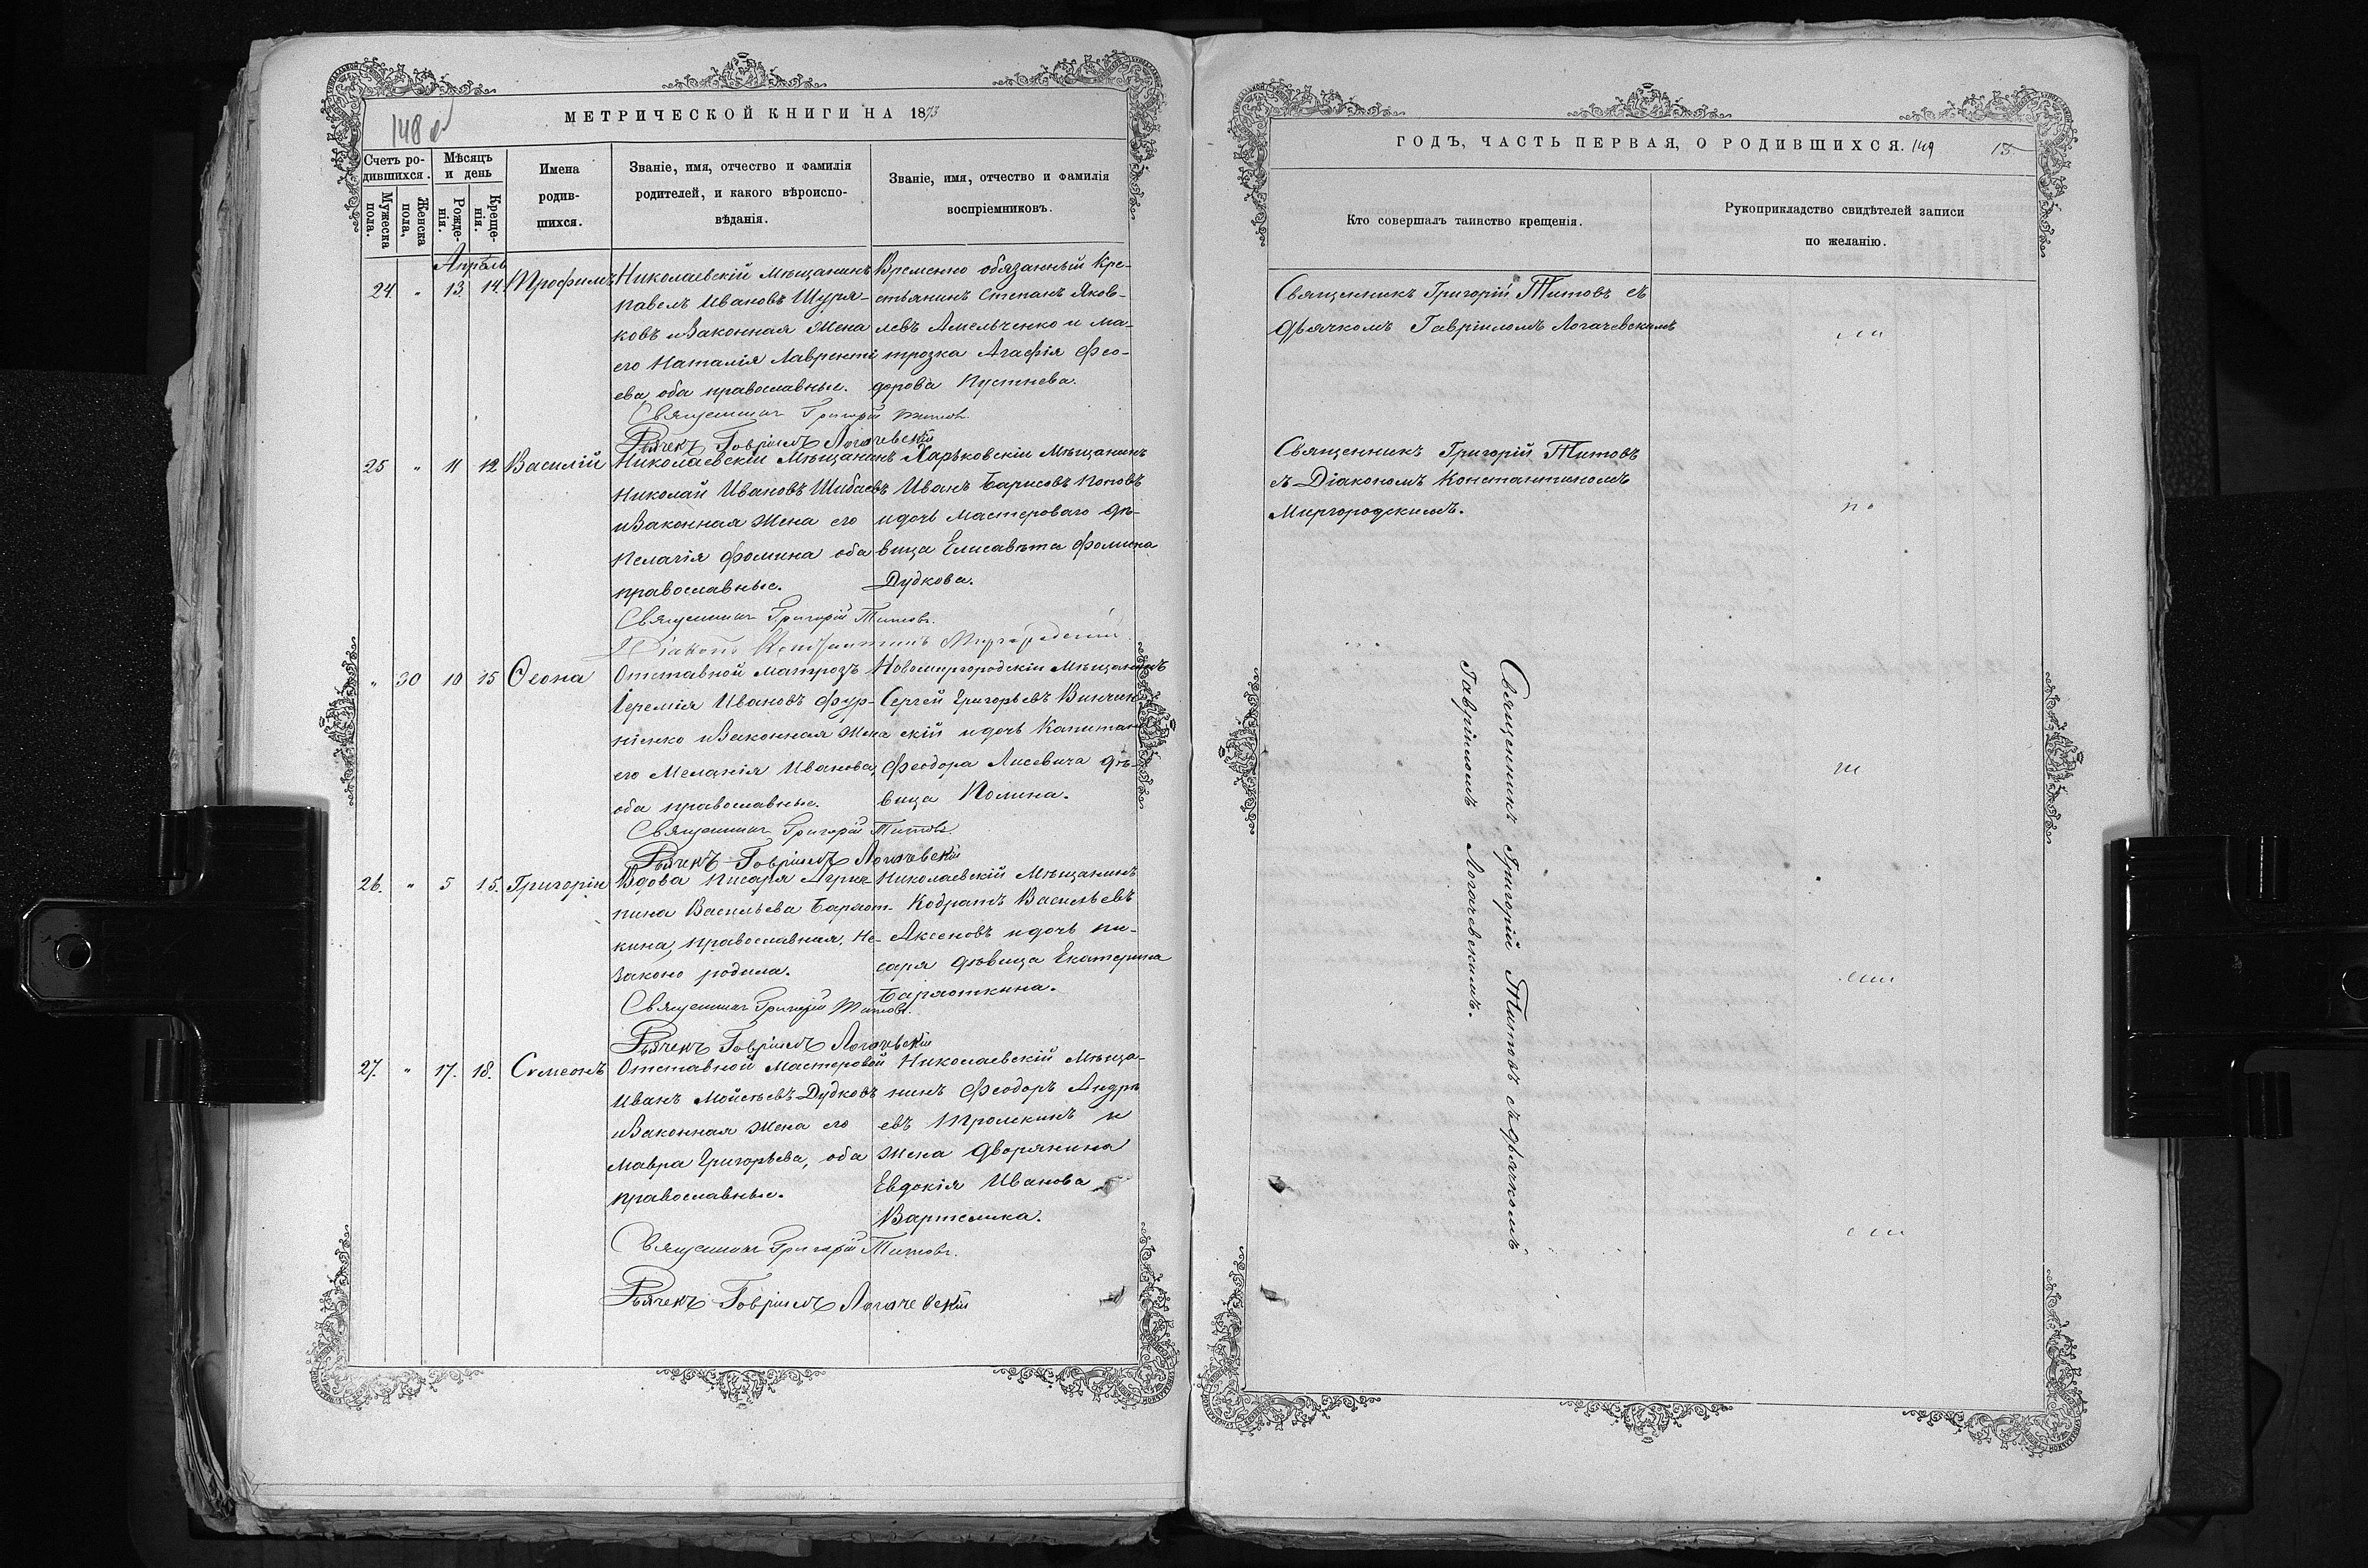 148 об
МЕТРИЧЕСКОЙ КНИГИ НА 1873
Счетъ ро-
дившихся.
Мужеска
пола.
Женска
пола.
Мѣсяцъ
и день
Рожде-
нія.
Креще-
нія.
Имена
родив-
шихся.
Званіе, имя, отчество и фамилія
родителей, и какого вѣроиспо-
вѣданія.
Званіе, имя, отчество и фамилія
воспріемниковъ.
Апрѣль
24. " 13. 14. Трофимъ
Николаевскій Мѣщанинъ
Павелъ Ивановъ Шуря-
ковъ и Законная Жена
его Наталія Лавренті
ева, оба православные.
Временно обязанный Кре-
стьянинъ Степанъ Яков-
левъ Амельченко и ма-
трозка Агафія Фео-
дорова Пустнева.
Священникъ Григорій Титовъ.
Дьячекъ Гавріилъ Логачевскій
25 " 11 12 Василій
Николаевскій Мѣщанинъ
Николай Ивановъ Шибаевъ
и Законная Жена его
Пелагія Фомина оба
православные.
Харьковскій Мѣщанинъ
Иванъ Барисовъ Поповъ
и дочь Мастероваго дѣ-
вица Елисавѣта Фомина
Дудкова.
Священникъ Григорій Титовъ.
Діаконъ Константинъ Миргородскій
" 30 10 15 Ѳеона
Отставной Матрозъ
Іеремія Ивановъ Фур-
ніенко и Законная Жена
его Меланія Иванова,
оба православные.
Новомиргородскій Мѣщанинъ
Сергей Григорьевъ Винчин
скій и дочь Капитана
Феодора Лисевича дѣ-
вица Полина.
Священникъ Григорій Титовъ.
Дьячекъ Гавріилъ Логачевскій
26. " 5 15. Григорій
Вдова Писаря Агрип-
пина Васильева Баряот-
кина, православная. Не-
законо родила.
Николаевскій Мѣщанинъ
Кодратъ Васильевъ
Аксеновъ и дочь пи-
саря дѣвица Екатерина
Баряоткина.
Священникъ Григорій Титовъ.
Дьячекъ Гавріилъ Логачевскій
27. " 17. 18. Сѵмеонъ
Отставной Мастеровой
Иванъ Мойсѣевъ Дудковъ
и Законная Жена его
Мавра Григорьева, оба
православные.
Николаевскій Мѣща-
нинъ Феодоръ Андре
евъ Тромкинъ и
Жена дворянина
Евдокія Иванова
Вартемика.
Священникъ Григорій Титовъ.
Дьячекъ Гавріилъ Логачевскій
ГОДЪ, ЧАСТЬ ПЕРВАЯ, О РОДИВШИХСЯ. 149 15
Кто совершалъ таинство крещенія.
Рукоприкладство свидѣтелей записи
по желанію.
Священникъ Григорій Титовъ съ
дьячкомъ Гавріиломъ Логачевскимъ
Священникъ Григорій Титовъ
съ Діакономъ Константиномъ
Миргородскимъ.
Священникъ Григорій Титовъ съ дьячкомъ
Гавріиломъ Логачевскимъ.